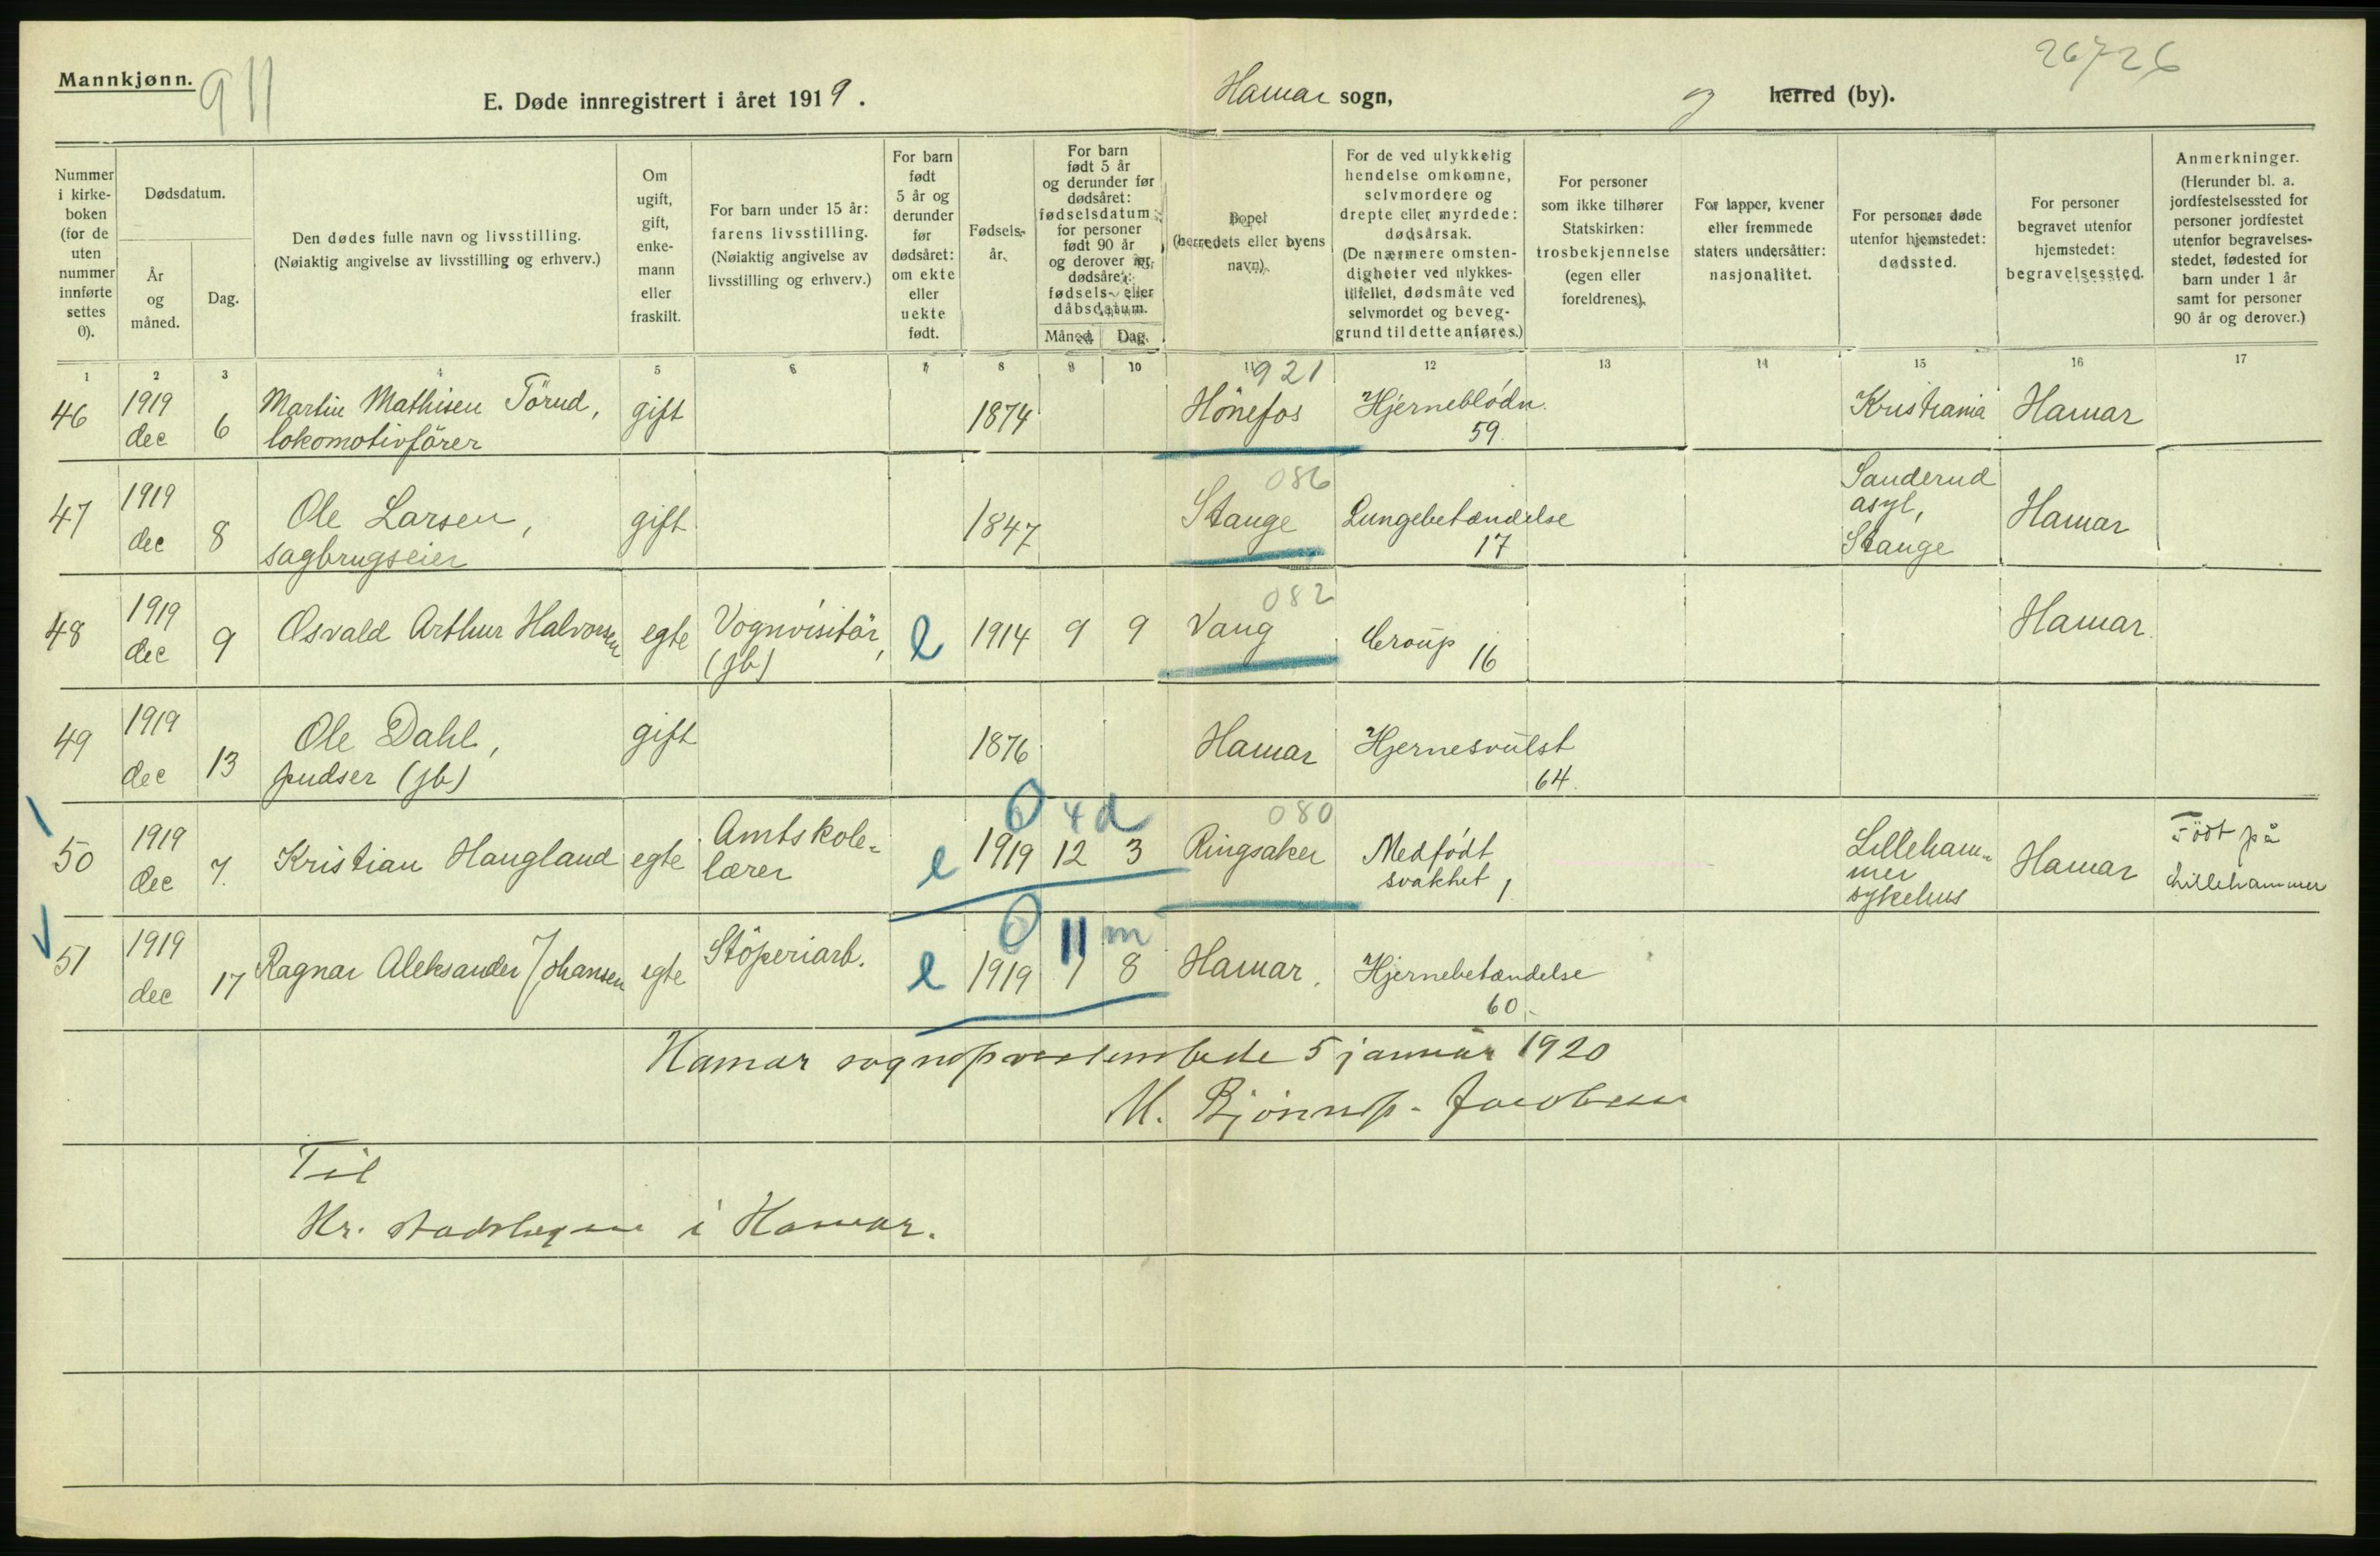 Mannkjønn.
911
26726
E. Døde innregistrert i året 1919.
Hamar sogn,
og herred (by).
Nummer i kirke-boken (for de uten nummer innførte settes 0).
Dødsdatum.
År og måned.
Dag.
Den dødes fulle navn og livsstilling.
(Nøiaktig angivelse av livsstilling og erhverv.)
Om ugift, gift, enke-mann eller fraskilt.
For barn under 15 år: farens livsstilling. (Nøiaktig angivelse av livsstilling og erhverv.)
For barn født 5 år og derunder før dødsåret: om ekte eller uekte født.
Fødsels-år.
For barn født 5 år og derunder før dødsåret: fødselsdatum; for personer født 90 år og derover før dødsåret: fødsels- eller dåbsdatum.
Måned. Dag.
Bopel (herredets eller byens navn).
For de ved ulykkelig hendelse omkomne, selvmordere og drepte eller myrdede: dødsårsak. (De nærmere omsten-digheter ved ulykkes-tilfellet, dødsmåte ved selvmordet og beveg-grund til dette anføres.)
For personer som ikke tilhører Statskirken: trosbekjennelse (egen eller foreldrenes).
For lapper, kvener eller fremmede staters undersåtter: nasjonalitet.
For personer døde utenfor hjemstedet: dødssted.
For personer begravet utenfor hjemstedet: begravelsessted.
Anmerkninger. (Herunder bl. a. jordfestelsessted for personer jordfestet utenfor begravelses-stedet, fødested for barn under 1 år samt for personer 90 år og derover.)
1 2 3 4 5 6 7 8 9 10 11 12 13 14 15 16 17
921
46 1919 dec 6 Martin Mathisen Törud, lokomotivförer gift 1874 Hönefos Hjerneblödn. 59. Kristiania Hamar
086
47 1919 dec 8 Ole Larsen, sagbrugseier gift 1847 Stange Lungebetændelse 17 Sanderud asyl, Stange Hamar
082
48 1919 dec 9 Osvald Arthur Halvorsen egte Vognvisitör, (jb) e 1914 9 9 Vang Croup 16 Hamar.
49 1919 dec 13 Ole Dahl, pudser (jb) gift 1876 Hamar Hjernesvulst 64.
0 4 d 080
50 1919 dec 7. Kristian Haugland egte Amtskole-lærer e 1919 12 3 Ringsaker Medfödt svakhet 1 Lilleham-mer sykehus Hamar Födt på Lillehammer
0 11 m
51 1919 dec 17 Ragnar Aleksander Johansen egte Stöperiarb. e 1919 1 8 Hamar. Hjernebetændelse 60.
Hamar sogneprestembede 5 januar 1920
M. Bjönness-Jacobsen
Til
Hr. stadslægen i Hamar.